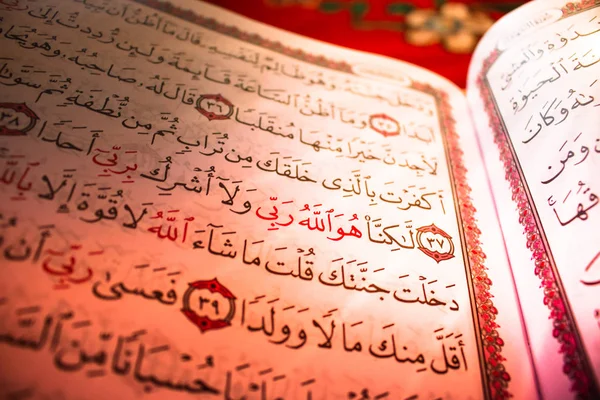 وَدَخَلَ جَنَّتَهُۥ وَهُوَ ظَالِمٌ لِّنَفْسِهِۦ قَالَ مَآ أَظُنُّ أَن تَبِيدَ
أَبَدًا ٣٥ وَمَآ أَظُنُّ ٱلسَّاعَةَ قَآئِمَةً وَلَئِن رُّدِدتُّ إِلَىٰ
لَأَجِدَنَّ خَيْرًا مِّنْهَا مُنقَلَبًا ٣٦ قَالَ لَهُۥ صَاحِبُهُۥ وَهُوَ
أَكَفَرْتَ بِٱلَّذِى خَلَقَكَ مِن تُرَابٍ ثُمَّ مِن نُّطْفَةٍ ثُمَّ سَوَّىٰكَ
٣٧ لَّٰكِنَّا۠ هُوَ ٱللَّهُ رَبِّى وَلَآ أُشْرِكُ بِرَبِّىٓ أَحَدًا ٣٨
دَخَلْتَ جَنَّتَكَ قُلْتَ مَا شَآءَ ٱللَّهُ لَا قُوَّةَ إِلَّا بِٱللَّهِ
أَقَلَّ مِنكَ مَالًا وَوَلَدًا ٣٩ فَعَسَىٰ رَبِّىٓ أَن
عَلَيْهَا حُسْبَانًا مِّنَ